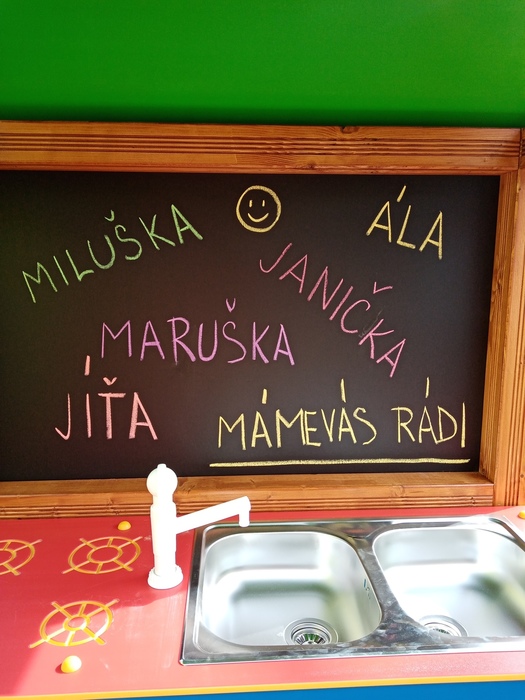 MILUŠKA
ÁLA
JANIČKA
MARUŠKA
JÍŤA
MÁMEVÁS RÁDI